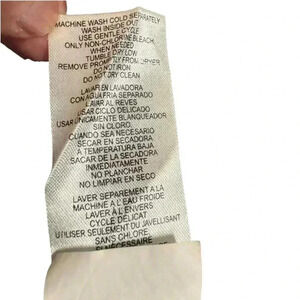 MACHINE WASH COLD SEPARATELY
WASH INSIDE OUT
USE GENTLE CYCLE
ONLY NON-CHLORINE BLEACH,
WHEN NEEDED
TUMBLE DRY LOW
REMOVE PROMPTLY FROM DRYER
DO NOT IRON
DO NOT DRY CLEAN
LAVAR EN LAVADORA
CON AGUA FRIA SEPARADO
LAVAR AL REVES
USAR CICLO DELICADO
USAR UNICAMENTE BLANQUEADOR
SIN CLORO,
CUANDO SEA NECESARIO
SECAR EN SECADORA
A TEMPERATURA BAJA
SACAR DE LA SECADORA
INMEDIATAMENTE
NO PLANCHAR
NO LIMPIAR EN SECO
LAVER SEPAREMENT A LA
MACHINE A L'EAU FROIDE
LAVER À L'ENVERS
CYCLE DELICAT
UTILISER SEULEMENT DU JAVELLISANT
SANS CHLORE,
SI NECESSAIRE